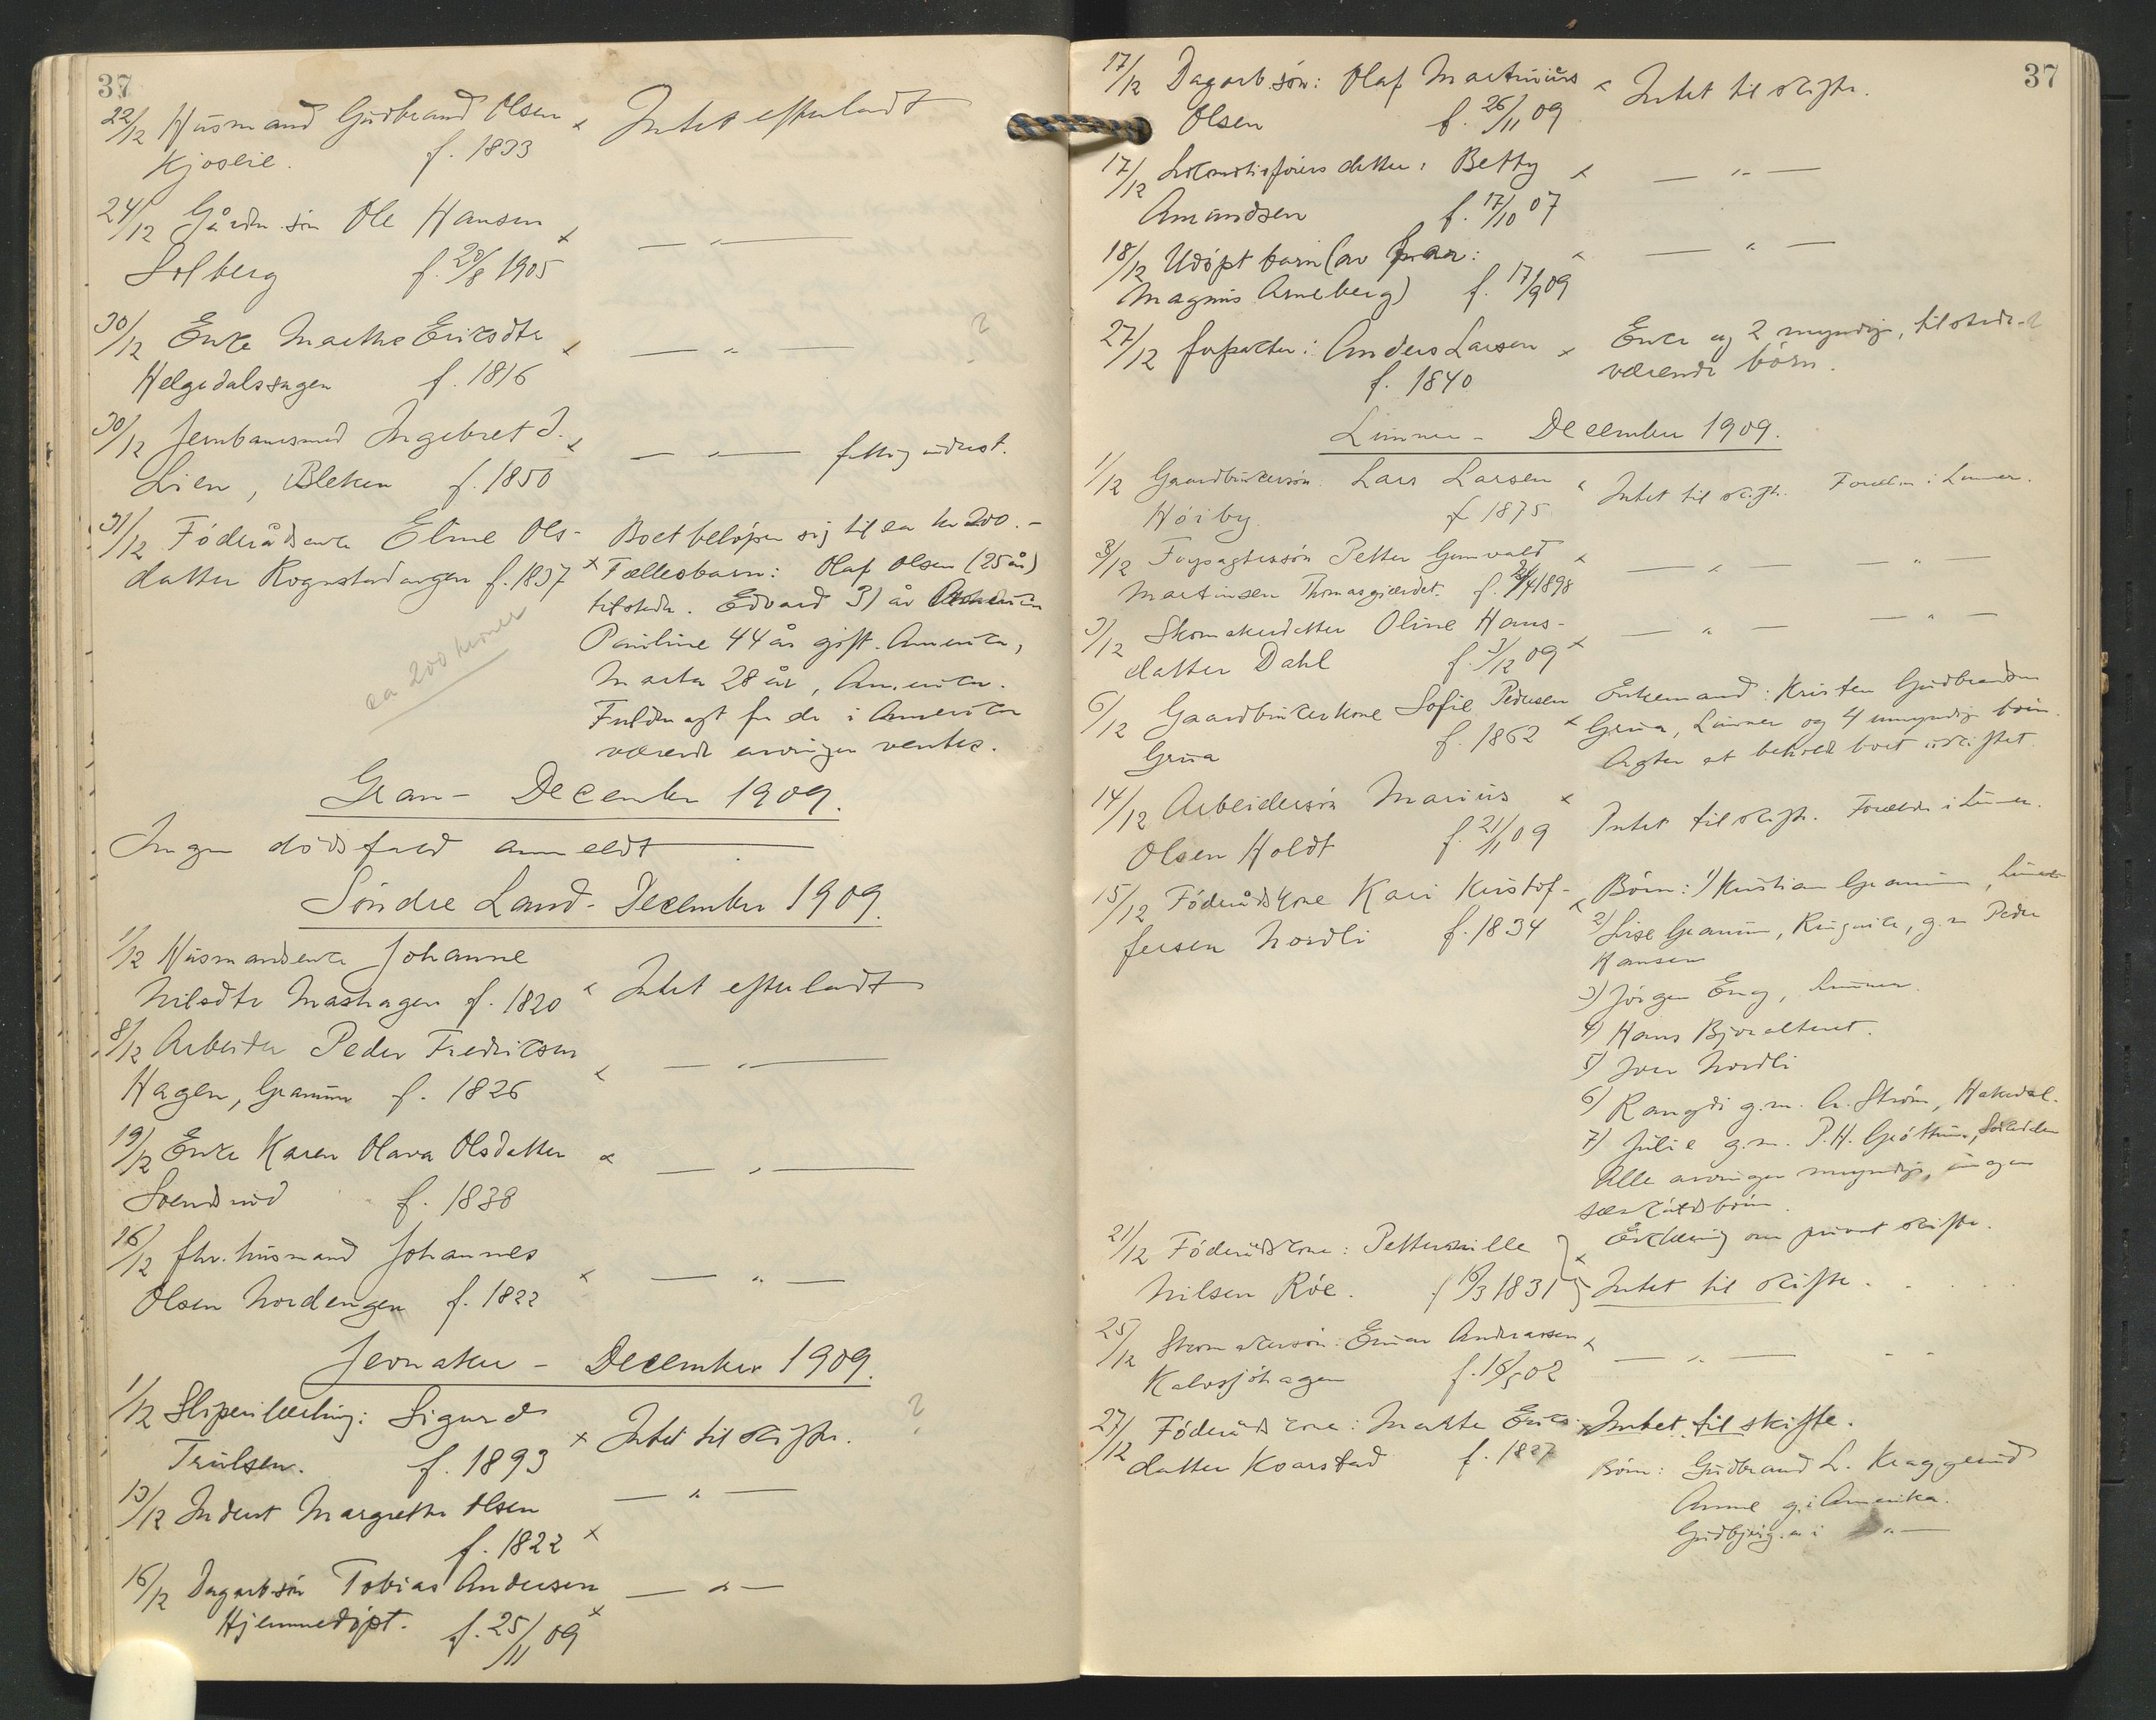 37
22/12 Husmand Gudbrand Olsen x Intet efterladt
Kjoslie. f. 1833
24/12 Gårdm. søn Ole Hansen x — " —
Solberg f. 20/8 1905
30/12 Enke Marthe Eriksdtr x — " — ?
Helgedalssagen f. 1816
30/12 Jernbanesmed Ingebret J. x — " — fattigunderst.
Lien, Bleken f. 1850
31/12 Föderådsenke Eline Ols- Boet beløper sig til ca kr 200.-
datter Rognstadangen f. 1837 x Fællesbarn: Olaf Olsen (25 år)
tilstede. Edvard 31 år Amerika
Pauline 44 år gift. Amerika,
ca 200 kroner
Marta 28 år, Amerika.
Fuldmagt fra de i Amerika
værende arvinger ventes.
Gran - December 1909.
Ingen dødsfald anmeldt —
Søndre Land - December 1909.
1/12 Husmandsenke Johanne
Nilsdtr Mashagen f. 1820 x Intet efterladt
8/12 Arbeider Peder Fredriksen
Hagen, Granum f. 1826 x — " —
19/12 Enke Karen Olava Olsdatter x — " —
Svendsrud f. 1838
16/12 fhv. husmand Johannes
Olsen Nordengen f. 1822 x — " —
Jevnaker - December 1909.
1/12 Sliperilærling: Sigurd ?
Trulsen. f. 1893 x Intet til skifte.
13/12 Inderst Margrethe Olsen — " —
f. 1822 x
16/12 Dagarb. søn Tobias Andersen — " —
Hjemmedøpt. f. 25/11 09 x
37
17/12 Dagarb. søn: Olaf Martinius x Intet til skifte.
Olsen f. 26/11 09
17/12 Lokomotivførers datter: Betty x — " —
Amundsen f. 17/10 07
18/12 Udøpt barn (av x — " —
Magnus Arneberg) f. 17/9 09
27/12 forpakter: Anders Larsen x Enke og 2 myndige, tilstede- ?
f. 1840 værende børn.
Lunner - December 1909.
1/12 Gaardbrukersøn: Lars Larsen x Intet til skifte. Forældre i Lunner.
Høiby. f 1875
3/12 Forpagtersøn Petter Gunvald x — " — — " —
Martinsen Thomasgjærdet. f. 24/4 1898
3/12 Skomakerdatter Oline Hans- — " — — " —
datter Dahl f. 3/12 09 x
6/12 Gaardbrukerkone Sofie Pedersen Enkemand: Kristen Gudbrandsen
Grua f. 1862 x Grua, Lunner og 4 umyndige børn.
Agter at beholde boet uskiftet.
14/12 Arbeidersøn Marius x
Olsen Holdt f. 21/11 09 Intet til skifte. Forældre i Lunner.
15/12 Föderådskone Kari Kristof- x Børn: 1) Kristian Granum, Lunner
fersen Nordli f. 1834 2) Lise Granum, Ringerike, g.m Peder
Hansen
3) Jørgen Eng, Lunner.
4) Hans Bjoralteret.
5) Iver Nordli
6) Rangdi g.m. A. Strøm, Hakedal.
7) Julie g.m. P.H. Grøttum,
Alle arvinger myndige, ingen
særkuldsbørn.
Erklæring om privat skifte.
21/12 Föderådskone: Pettersille x
Nilsen Röe. f 16/3 1831 Intet til skifte.
25/12 Skomakersøn: Einar Andreassen x
Kalvsjøhagen f. 16/5 02 — " — - -
27/12 Föderådskone: Marte Eriks- x Intet til skifte.
datter Koarstad f. 1827
Børn: Gudbrand L. Kraggerud
Anne g. i Amerika.
Gudbjørg. m i — " —